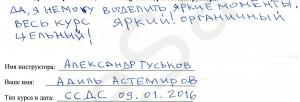 ДА, Я НЕ МОГУ ВЫДЕЛИТЬ ЯРКИЕ МОМЕНТЫ.
ВЕСЬ КУРС ЯРКИЙ! ОРГАНИЧНЫЙ
ЦЕЛЬНЫЙ!
Имя инструктора: АЛЕКСАНДР ГУСЬКОВ
Ваше имя: АДИЛЬ АСТЕМИРОВ
Тип курса и дата: ССДС 09.01.2016